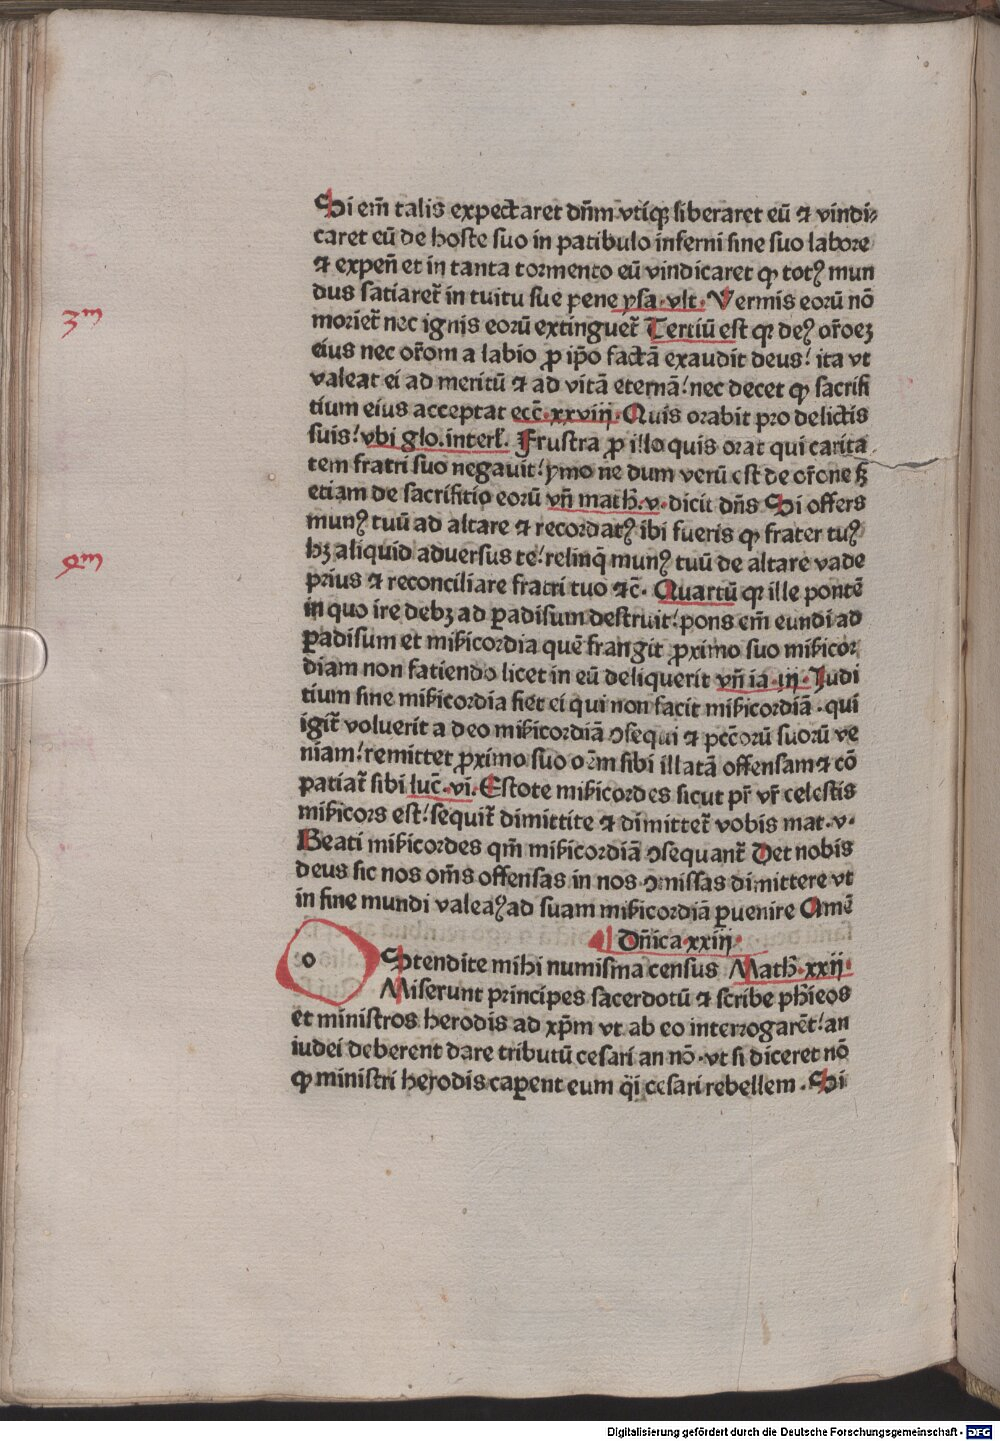 Si em̄ talis expectaret dn̄m vtiqꝫ liberaret eū ⁊ vindi⸗
caret eū de hoste suo in patibulo inferni sine suo labore
⁊ expen̄ et in tanta tormento eū vindicaret ꝙ totꝰ mun
dus satiaret̄ in tuitu sue pene ysa·vlt·Vermis eorū nō
moriet̄ nec ignis eorū extinguet̄ Tertiū est qꝛ deꝰ or̄oeꝫ
eius nec or̄om a labio ꝓ ip̄o factā exaudit deus/ ita vt
valeat ei ad meritū ⁊ ad vitā eternā/nec decet ꝙ sacrifi
tium eius acceptat ecc̄·xxviij·Quis orabit pro delictis
suis/vbi glo.interl̄. Frustra ꝓ illo quis orat qui carita
tem fratri suo negauit/ymo ne dum verū est de or̄one sꝫ
etiam de sacrifitio eorū vn̄ math̄.v·dicit dn̄s Si offers
munꝰ tuū ad altare ⁊ recordatꝰ ibi fueris ꝙ frater tuꝰ
hꝫ aliquid adversus te/relinq̄ munꝰ tuū de altare vade
prius ⁊ reconciliare fratri tuo ⁊c̄· Quartū qꝛ ille pontē
in quo ire debꝫ ad ꝑadisum destruit/pons em̄ eundi ad
ꝑadisum et mis̄icordia quē frangit ꝓximo suo mis̄icor
diam non fatiendo licet in eū deliquerit vn̄ ia·iij·Judi
tium sine mis̄icordia fiet ei qui non facit mis̄icordiā·qui
igit̄ voluerit a deo mis̄icordiā ↄsequi ⁊ pcc̄orū suorū ve
niam/remittet ꝓximo suo om̄m sibi illatā offensam⁊ cō
patiat̄ sibi luc̄·vi·Estote mis̄icordes sicut pr̄ vr̄ celestis
mis̄icors est/sequit̄ dimittite ⁊ dimittet̄ vobis mat·v·
Beati mis̄icordes qm̄ mis̄icordiā ↄsequant̄ Det nobis
deus sic nos om̄s offensas in nos ↄmissas dimittere vt
in fine mundi valeaꝰ ad suam mis̄icordiā ꝑuenire Amē
Dn̄ica·xxiij·
o Stendite mihi numisma census Math̄·xxij·
Miserunt principes sacerdotū ⁊ scribe ph̄ieos
et ministros herodis ad xp̄m vt ab eo interrogarēt/an
iudei deberent dare tributū cesari an nō·vt si diceret nō
ꝙ ministri herodis caꝑent eum q̄i cesari rebellem·Si
3ᵐ
4ᵐ
Digitalisierung gefördert durch die Deutsche Forschungsgemeinschaft - DFG